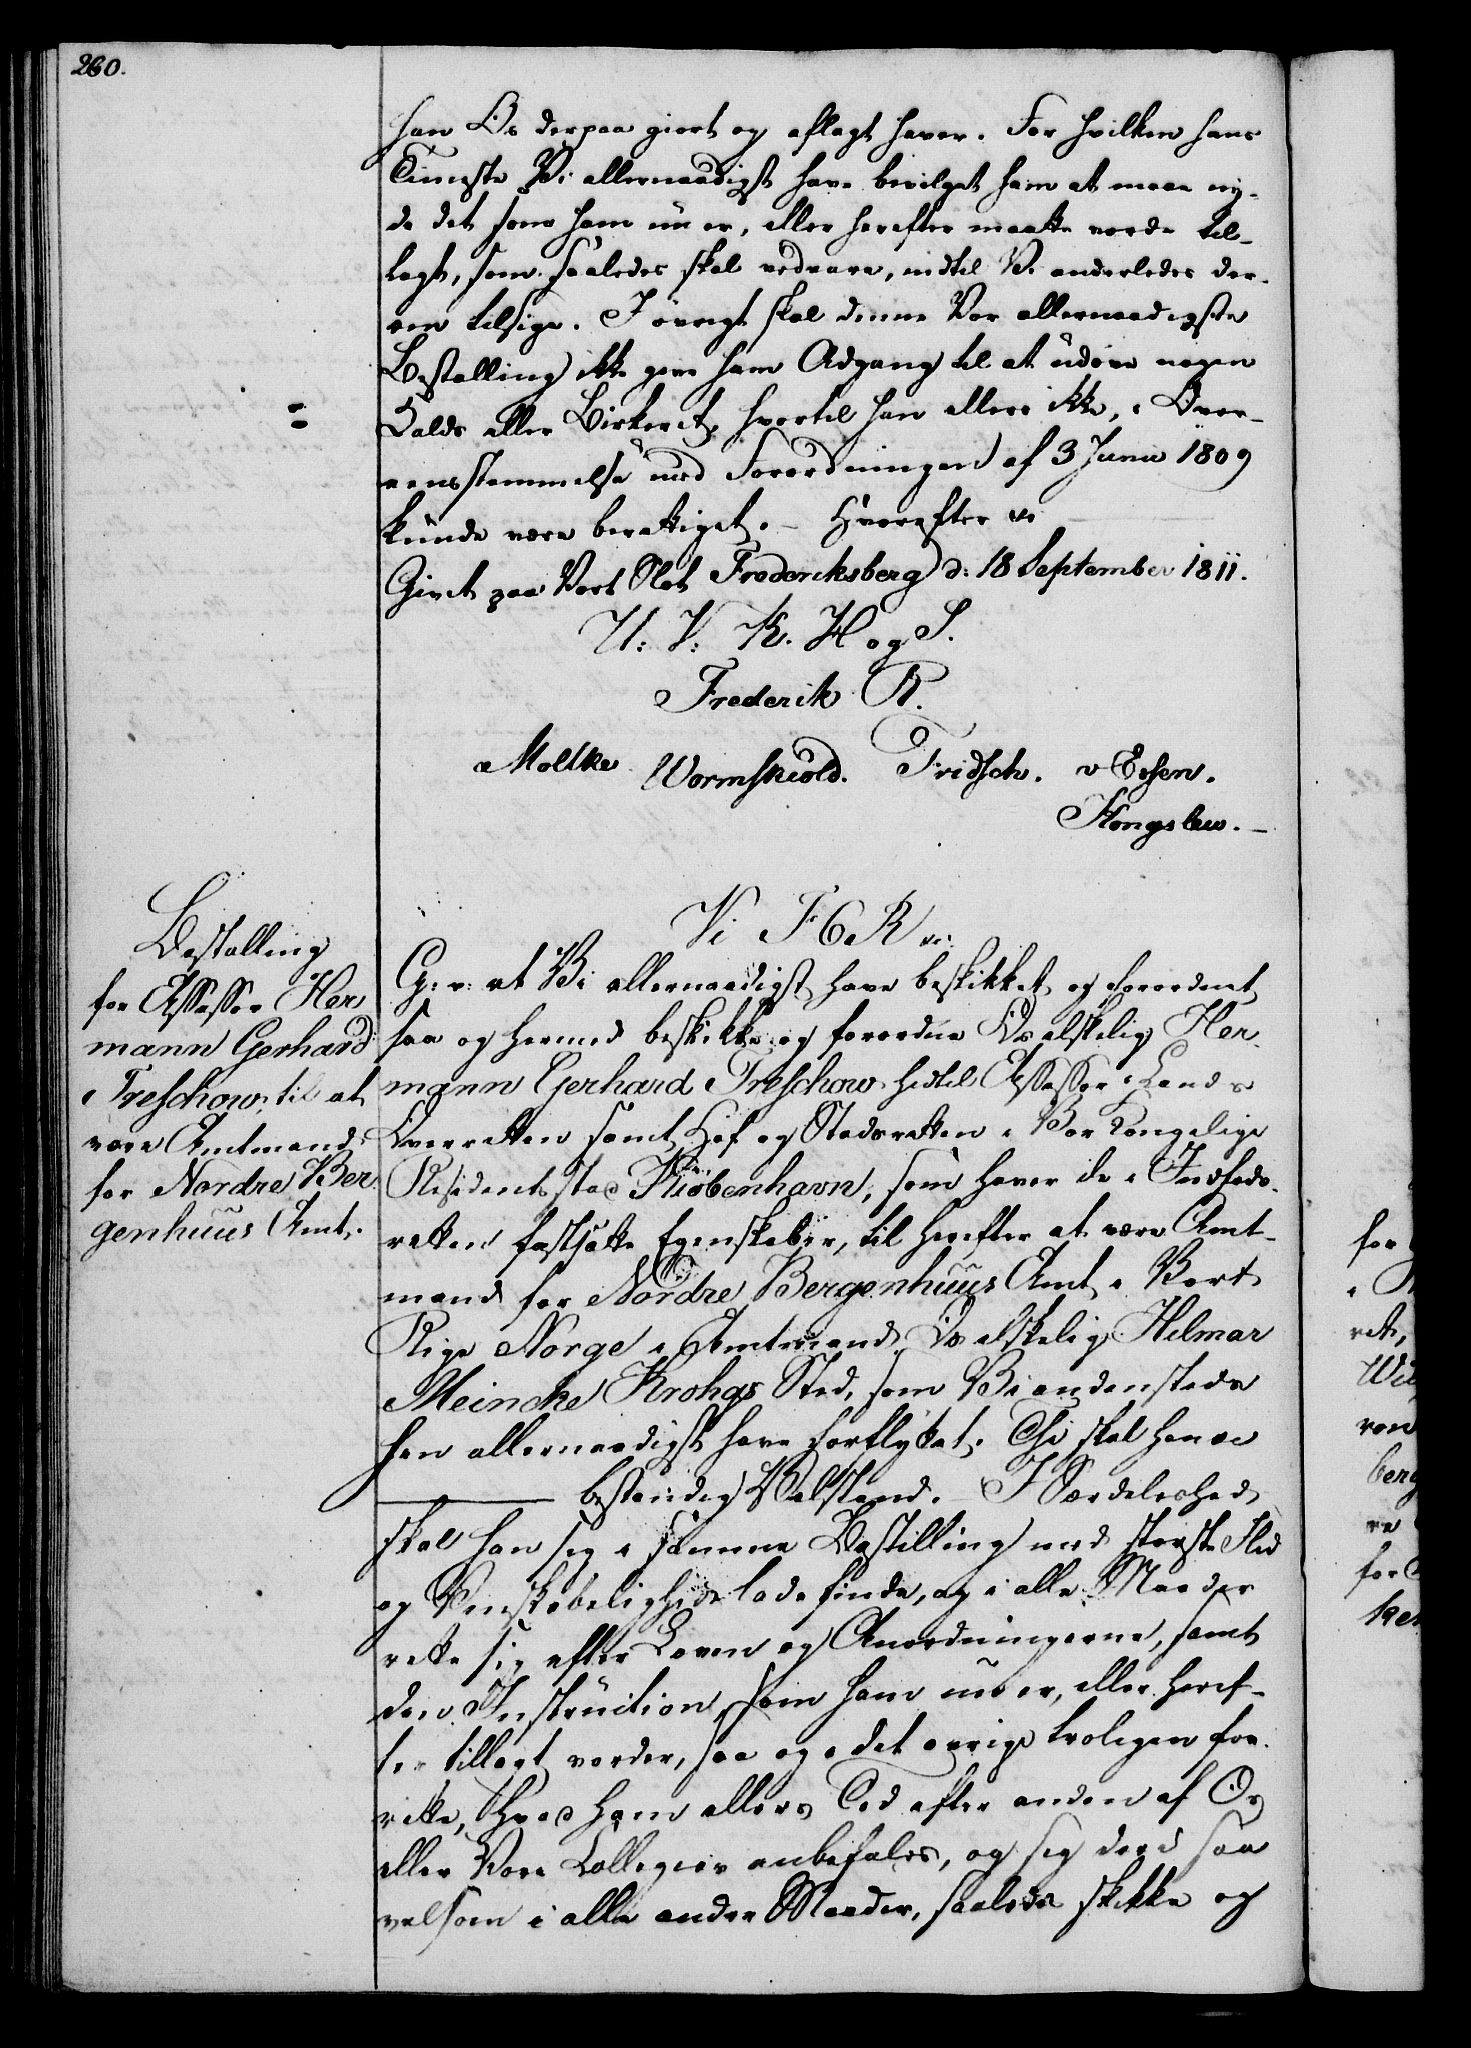 260.
han Os derpaa giort og aflagt haver. For hvilken hans
Tieneste Vi allernaadigst have bevilget ham at maae ny-
de det som ham nu er, eller herefter maatte vorde til-
lagt, som saaledes skal vedvare, indtil Vi anderledes der-
om tilsige. I övrigt skal denne Vor allernaadigste
Bestalling ikke give ham Adgang til at udöve nogen
Halds eller Birkeret, hvortil han ellers ikke, i Over-
eensstemmelse med Forordningen af 3 Junii 1809
kunde være berettiget. – Hvorefter &c
Givet paa Vort Slot Frederiksberg d: 18 September 1811.
U: V: K. H og S.
Frederik R.
Moltke Wormskiold. Fridsch. v Essen.
Kongslew. –
Bestalling
for Assessor Her
mann Gerhard
Treschow, til at
være Amtmand
for Nordre Ber
genhuus Amt.
Vi F 6 R &c:
G: v: at Vi allernaadigst have beskikket og forordnet
saa og hermed beskikke og forordne Os elskelig Her-
mann Gerhard Treschow hidtil Assessor i Lands
Overretten samt Hof og Stadsretten i Vor Kongelige
Residentsstad Kiöbenhavn, som haver de i Indföds-
retten fastsatte Egenskaber, til herefter at være Amt-
mand for Nordre Bergenhuus Amt i Vort
Rige Norge i Amtmand Os elskelig Hilmar
Meincke Krohgs Sted, som Vi andensteds
hen allernaadigst have forflyttet. Thi skal han &c
bestandig Velstand. I Særdeleshed
skal han sig i samme Bestilling med störste Flid
og Vinskabelighed lade finde, og i alle Maader
rette sig efter Loven og Anordningerne, samt
den Instruction, som ham nu er, eller heref-
ter tillagt vorder, saa og i det övrige troligen for-
rette, hvad ham ellers Tid efter anden af Os
eller Vore Collegier anbefales, og sig deri saa
velsom i alle andre Maader, saaledes skikke og